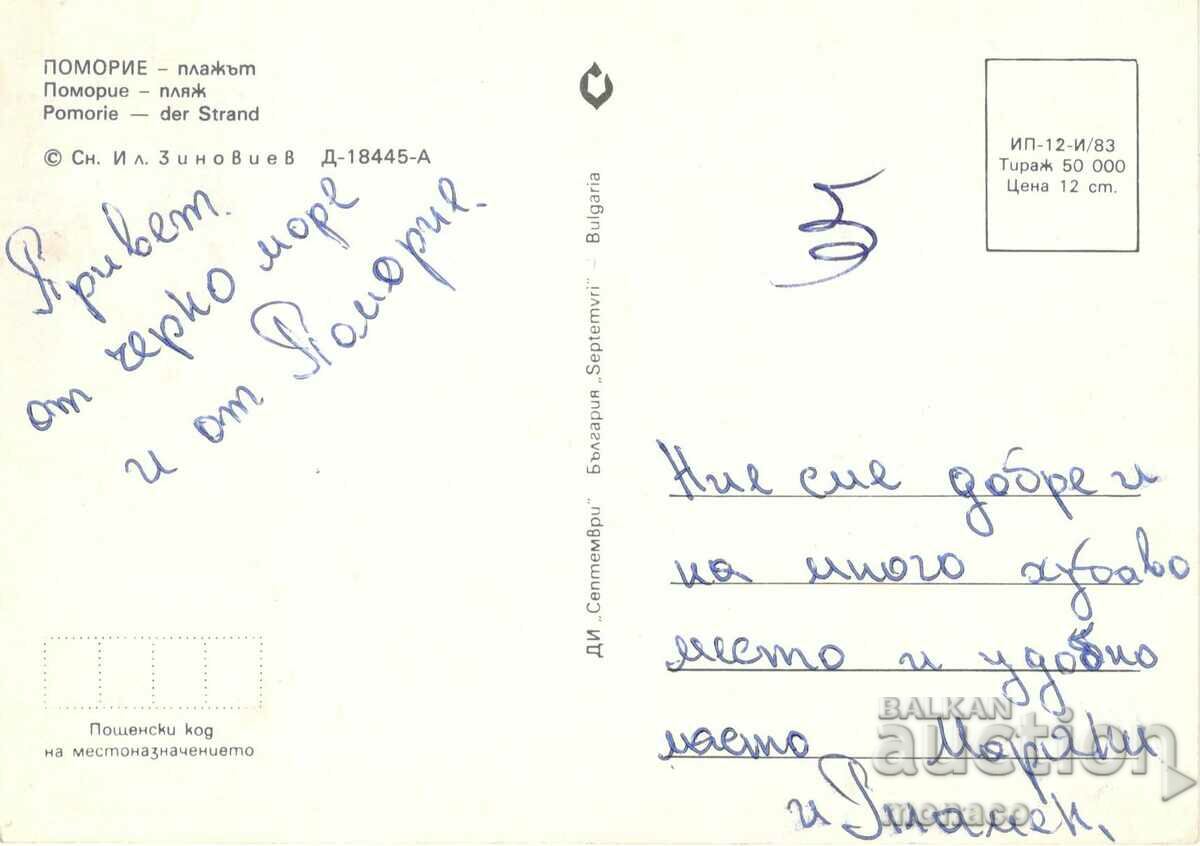 ПОМОРИЕ – плажът
Поморие – пляж
Pomorie — der Strand
© Сн. Ил. Зиновиев Д-18445-А
Привет.
от черно море
и от Поморие.
Пощенски код
на местоназначението
ДИ „Септември" България „Septemvri" – Bulgaria
5
ИП-12-И/83
Тираж 50 000
Цена 12 ст.
Ние сме добре и
на много хубаво
место и удобно
място
и Пламен.
BALKAN
auction
monaco